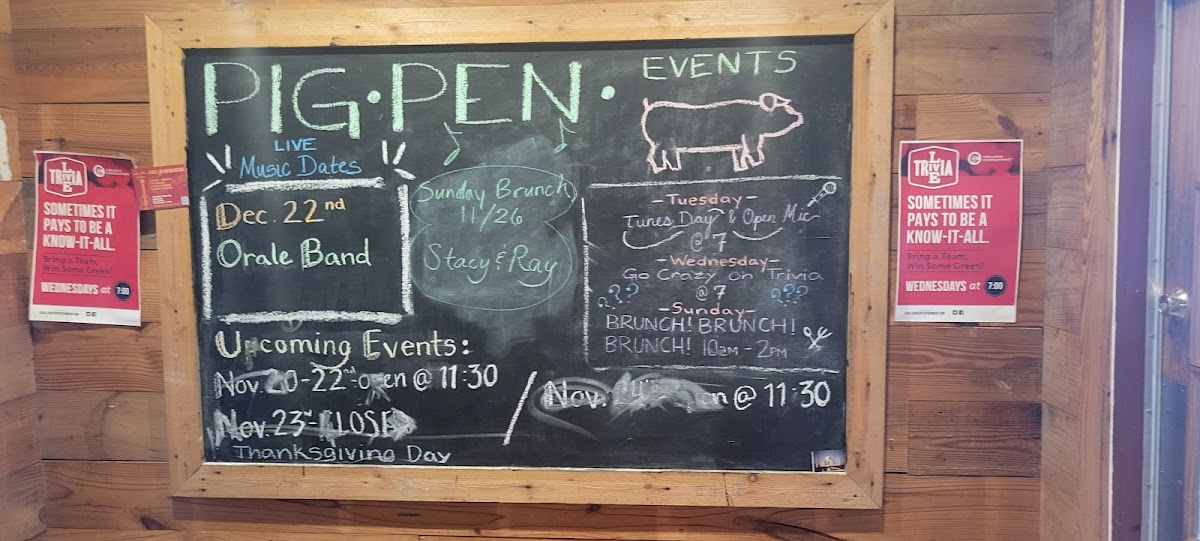 PIG•PEN•
EVENTS
LIVE
Music Dates
Dec. 22nd
Orale Band
Sunday Brunch
11/26
Stacy & Ray
-Tuesday-
Tunes Day & Open Mic
@ 7
-Wednesday-
Go Crazy on Trivia
??? @ 7 ???
-Sunday-
BRUNCH! BRUNCH!
BRUNCH! 10am-2pm
Upcoming Events:
Nov. 20-22nd-open @ 11:30
Nov. 23rd-CLOSED
Thanksgiving Day
Nov. @ 11:30
LIVE
TRIVIA
SOMETIMES IT
PAYS TO BE A
KNOW-IT-ALL.
Bring a Team,
Win Some Green!
WEDNESDAYS at 7:00
LIVE
TRIVIA
SOMETIMES IT
PAYS TO BE A
KNOW-IT-ALL.
Bring a Team,
Win Some Green!
WEDNESDAYS at 7:00